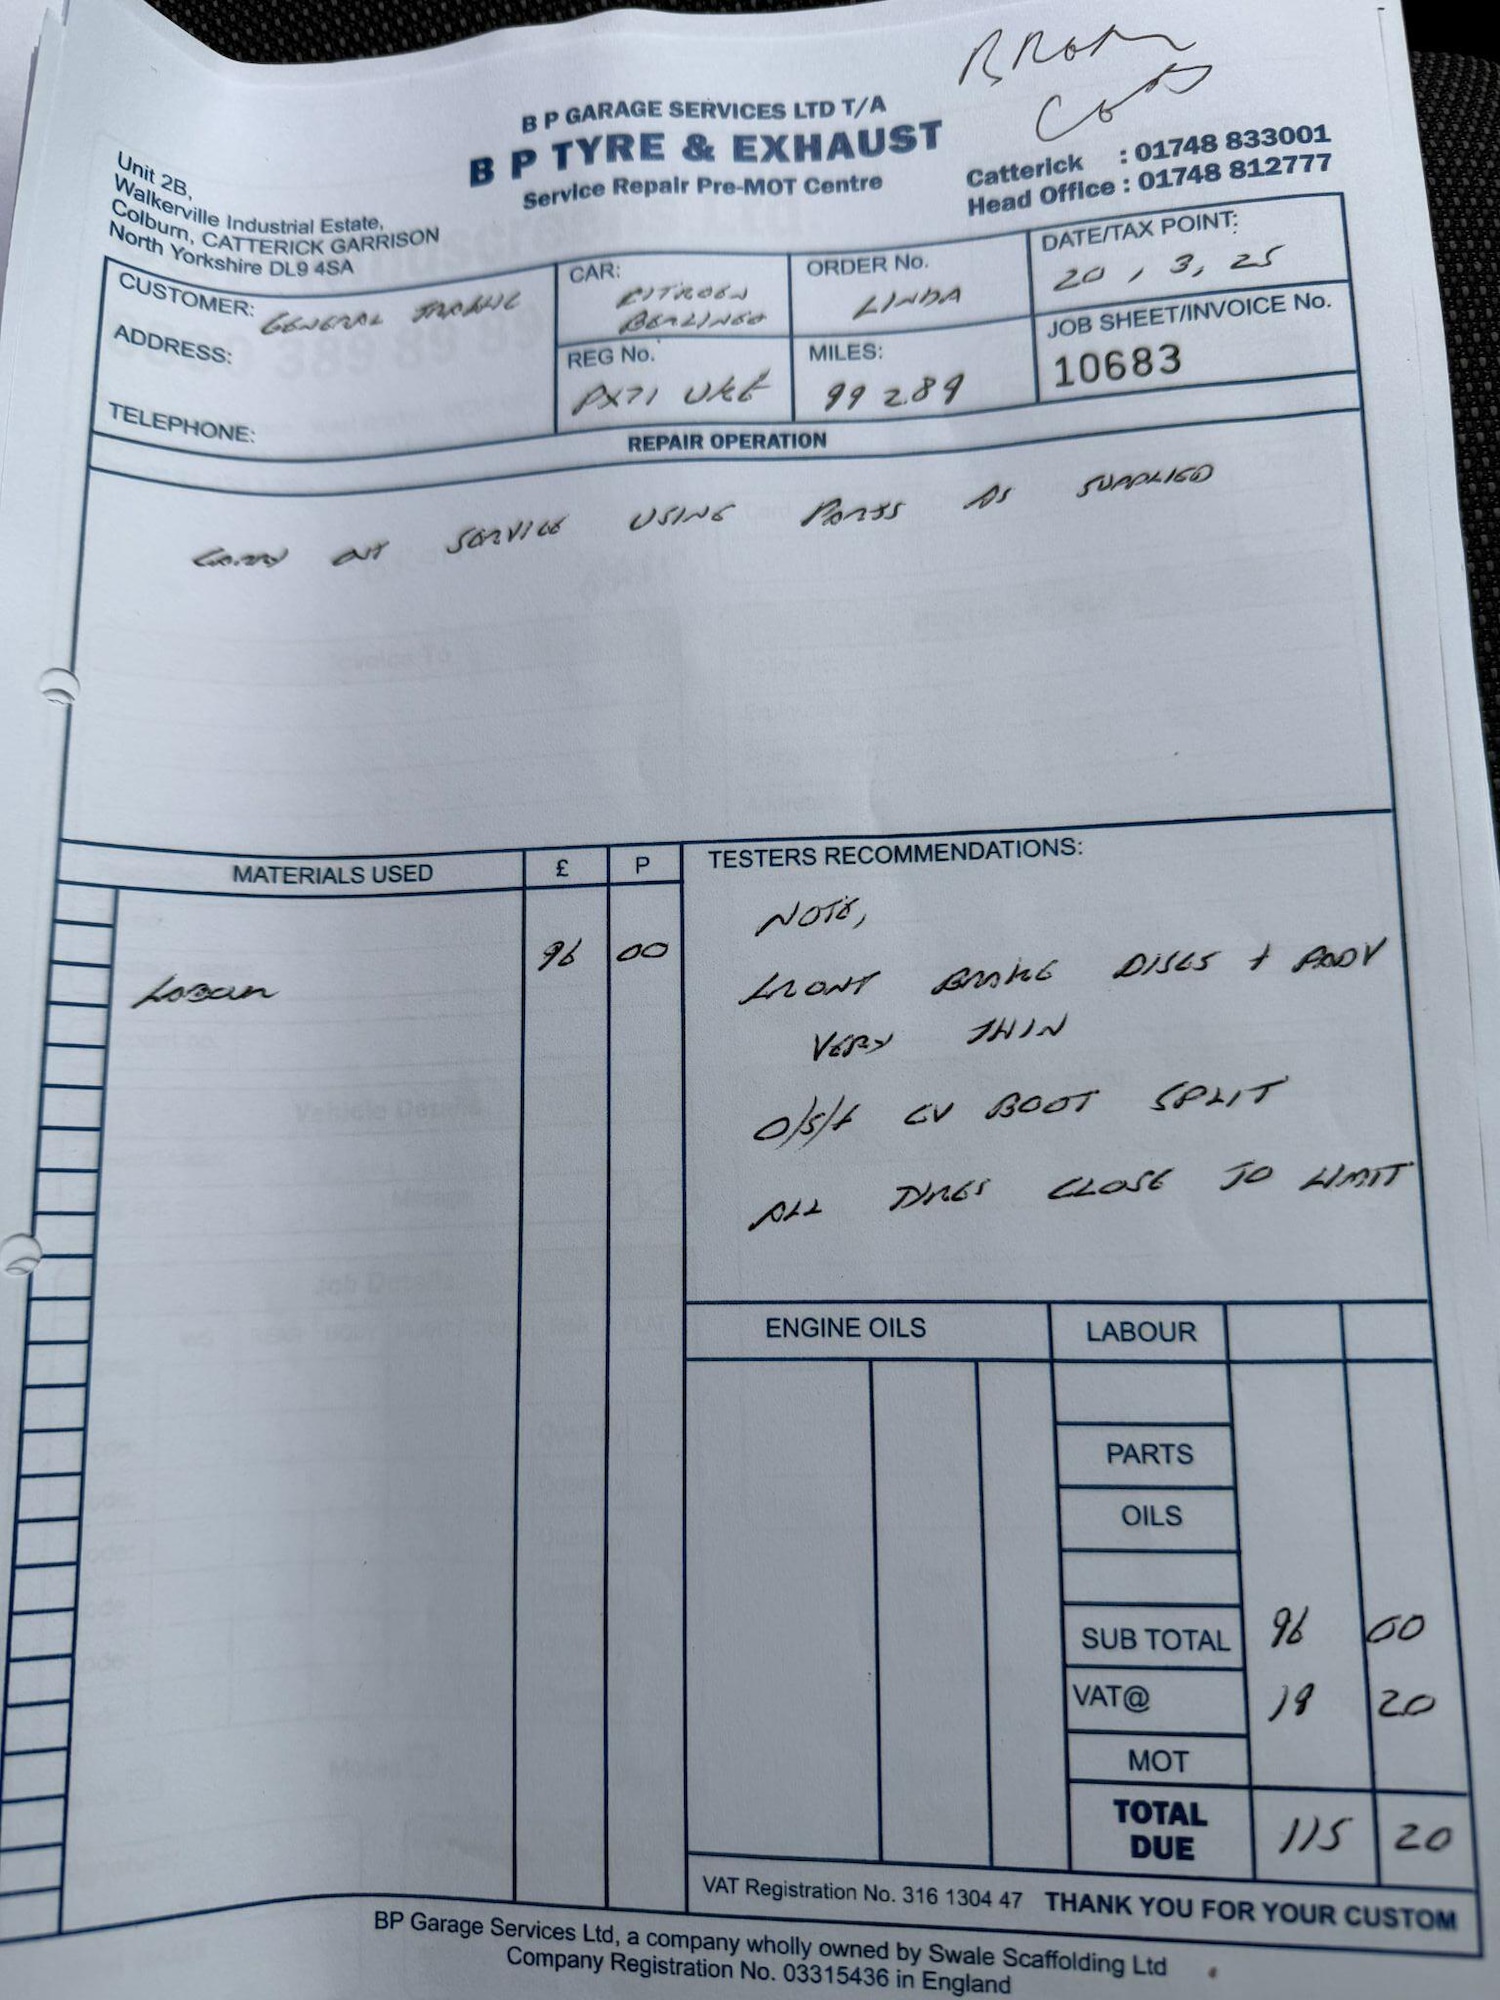 B P GARAGE SERVICES LTD T/A
B P TYRE & EXHAUST
Service Repair Pre-MOT Centre
Catterick : 01748 833001
Head Office : 01748 812777
Unit 2B,
Walkerville Industrial Estate,
Colburn, CATTERICK GARRISON
North Yorkshire DL9 4SA
CUSTOMER: GENERAL TRAFFIC
ADDRESS:
TELEPHONE:
CAR: CITROEN
BERLINGO
ORDER No.
LINDA
DATE/TAX POINT:
20, 3, 25
REG No.
PX71 UKE
MILES:
99 289
JOB SHEET/INVOICE No.
10683
REPAIR OPERATION
CARRY OUT SERVICE USING PARTS AS SUPPLIED
MATERIALS USED £ P
LABOUR 96 00
TESTERS RECOMMENDATIONS:
NOTE,
FRONT BRAKE DISCS + PADS
VERY THIN
O/S/F CV BOOT SPLIT
ALL TYRES CLOSE TO LIMIT
ENGINE OILS
LABOUR
PARTS
OILS
SUB TOTAL 96 00
VAT@ 19 20
MOT
TOTAL
DUE 115 20
VAT Registration No. 316 1304 47 THANK YOU FOR YOUR CUSTOM
BP Garage Services Ltd, a company wholly owned by Swale Scaffolding Ltd
Company Registration No. 03315436 in England